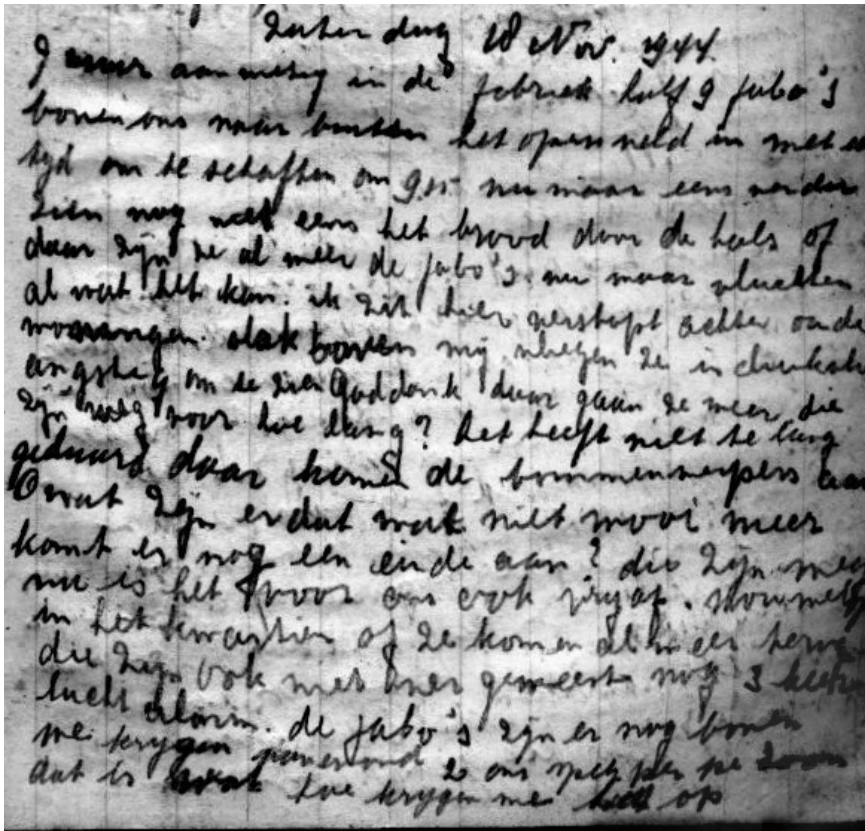 Zaterdag 18 Nov. 1944.
7 uur aanwezig in de fabriek half 9 jabo's
boven ons naar buiten het open veld in met
tijd om te schaften om 9 nu maar eens verder
zien nog niet eens het brood door de hals of
daar zijn ze al weer de jabo's nu maar vluchten
al wat het kan. ik zit hier verstopt achter oude
woningen. vlak boven mij vliegen ze in
angstig om te zien Goddank daar gaan ze weer die
zijn weg voor hoe lang? het heeft niet te lang
geduurd daar komen de bommenwerpers aan
O wat zijn er dat wat niet mooi meer
komt er nog een einde aan? die zijn weg
nu is het voor ons ook
in het kwartier of ze komen al weer terug
die zijn ook niet over geweest nog 3 keer
lucht alarm. de jabo's zijn er nog boven
we krygen vanavond 20 ons spek per
dat is wat hoe krygen we het op